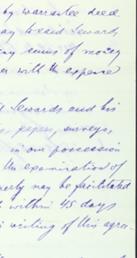 by warrantee deed
ay to said Sewards
any sums of money
er with the expense
Sewards and his
, papers, surveys,
in our possession
the examination of
perty may be facilitated
within 45 days
writing of this agree-